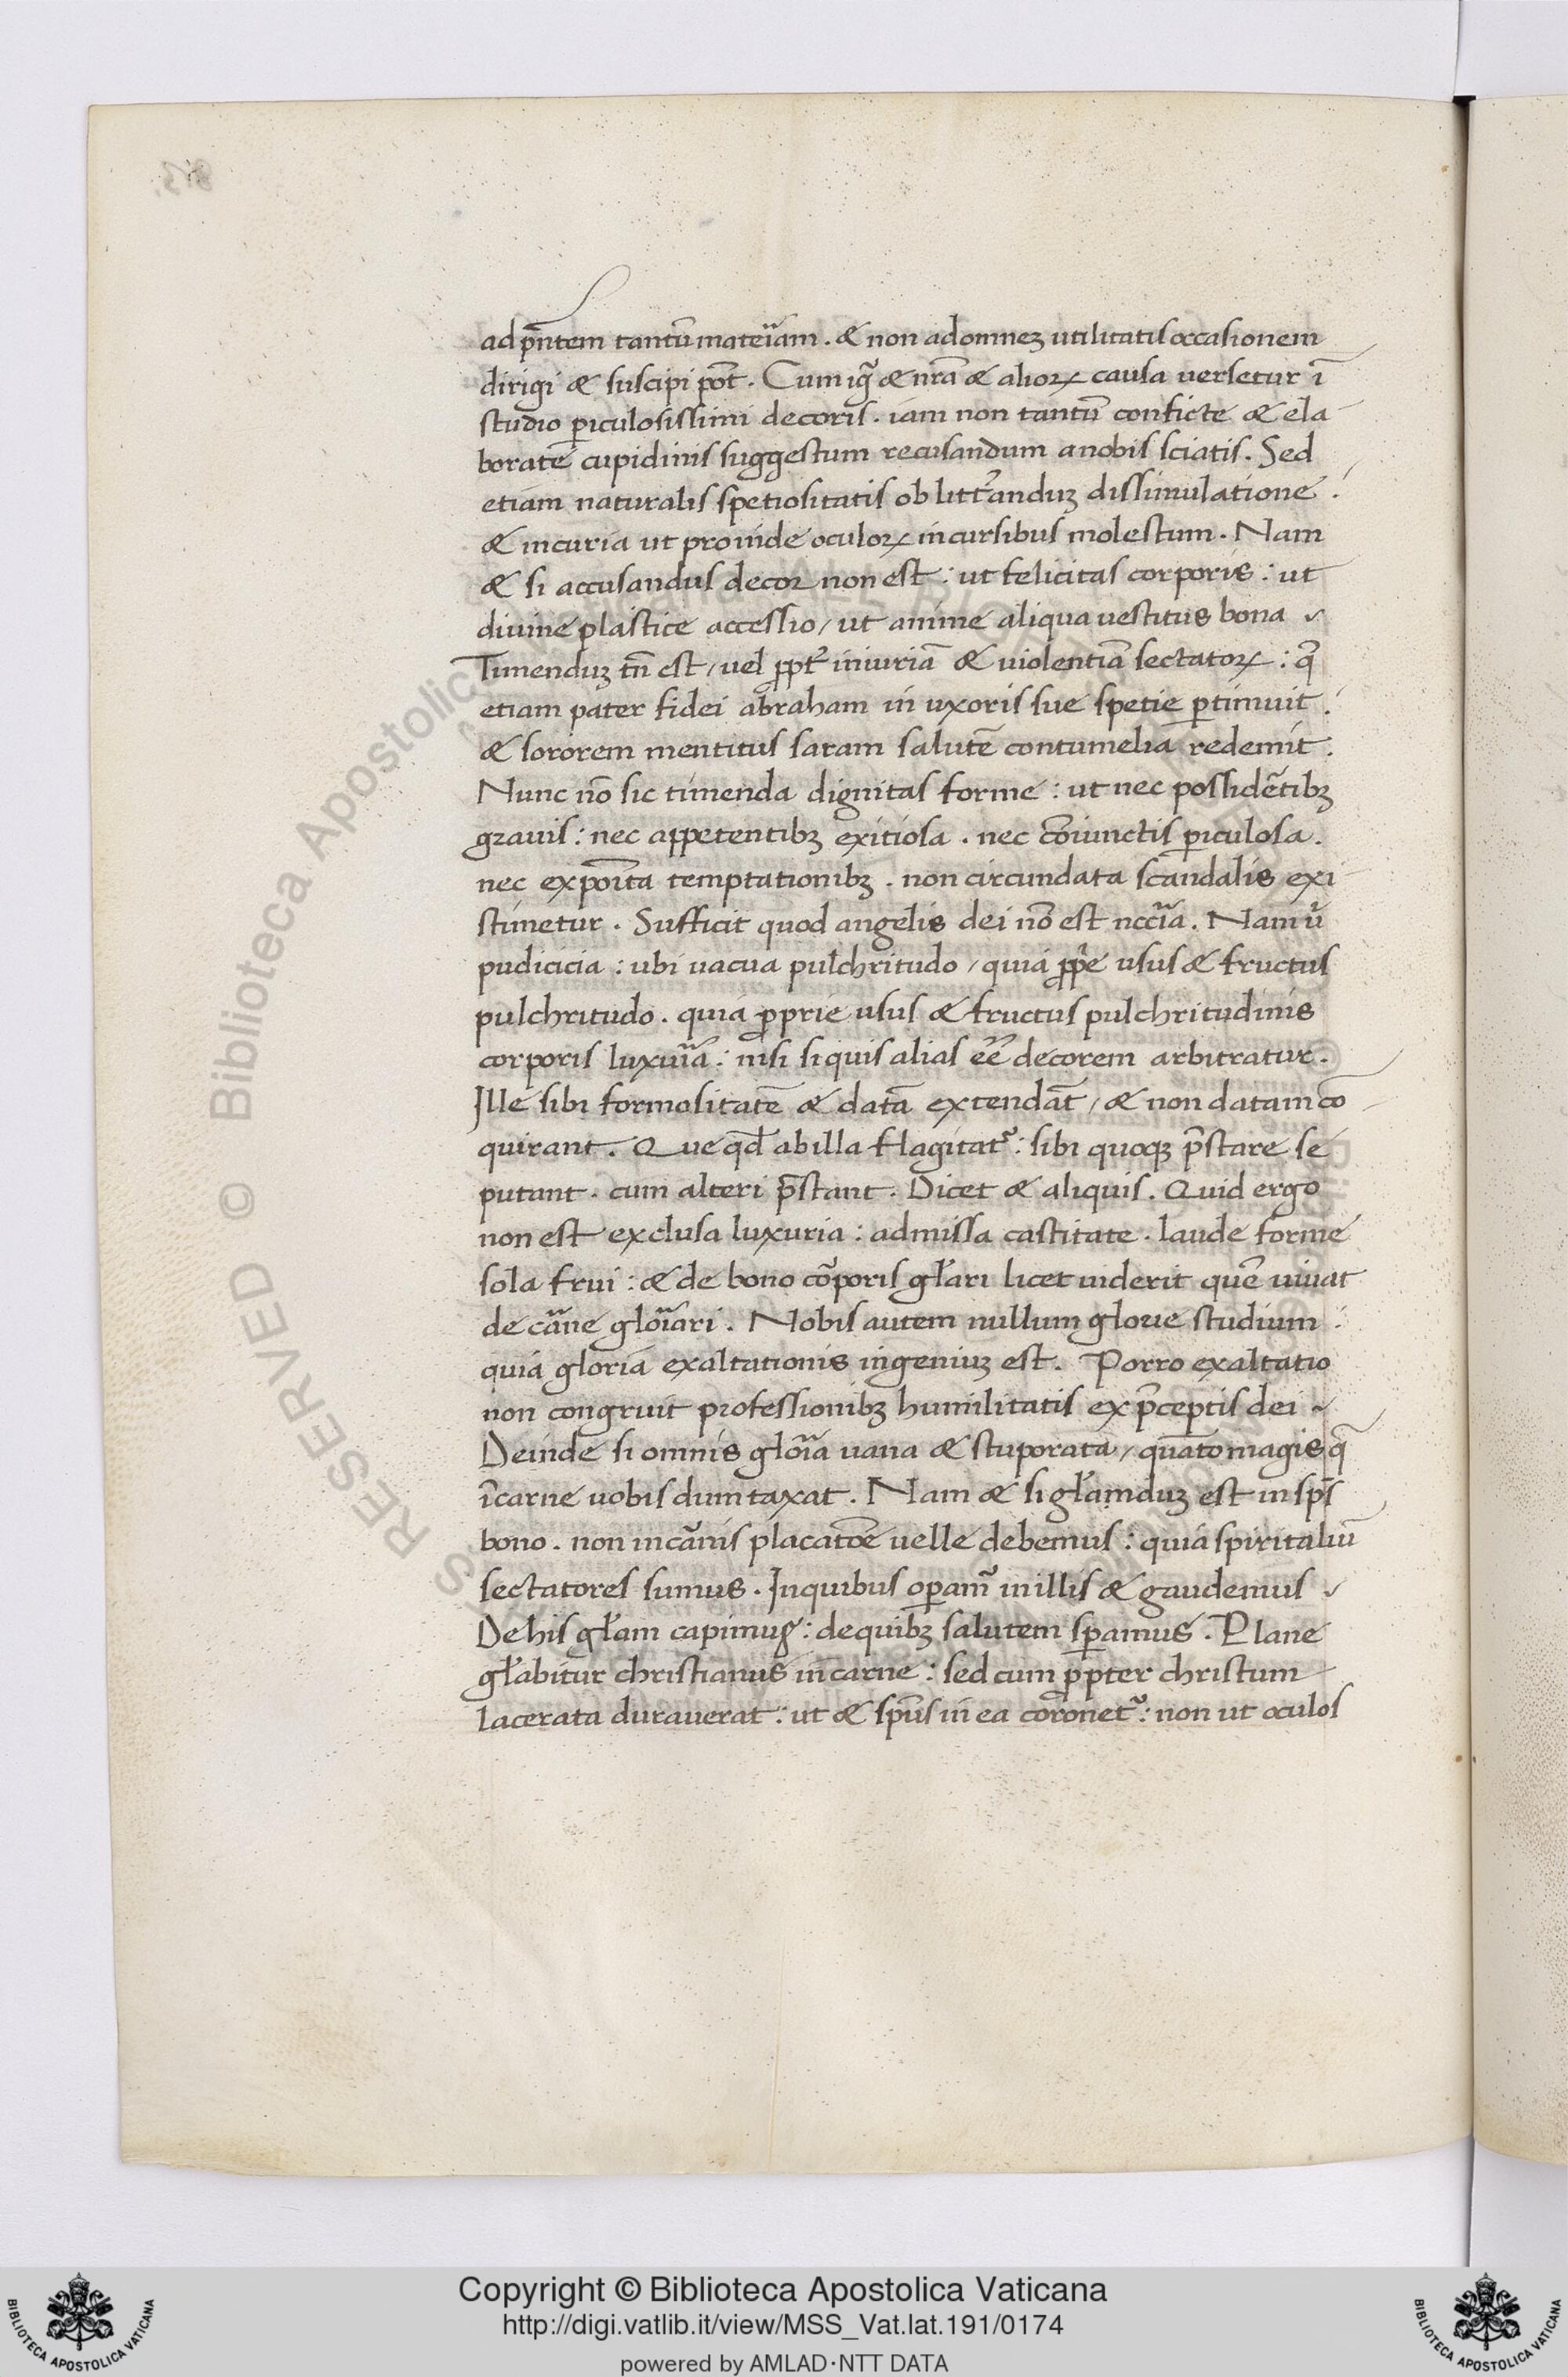 ad pn̄tem tantū mater̄iam . & non ad omneꝫ utilitatis occasionem
dirigi & suscipi pōt . Cum igͣ & nrā & alioꝝ causa versetur ī
studio ꝑiculosissimi decoris . iam non tantū conficte & ela
borate cupidinis suggestum recusandum a nobis sciatis . Sed
etiam naturalis spetiositatis oblitt̄anduꝫ dissimulatione .
& incuria ut proinde oculoꝝ incursibus molestum . Nam
& si accusandus decor non est : ut felicitas corporis : ut
divine plastice accessio / ut anime aliqua vestitus bona
Timenduꝫ tn̄ est / vel ꝓpt̄ iniuriā & violentiā sectatoꝝ : q̄
etiam pater fidei abraham in uxoris sue spetie ꝑtimuit .
& sororem mentitus saram salutē contumelia redemit :
Nunc nō sic timenda dignitas forme : ut nec possidētibꝫ
gravis : nec appetentibꝫ exitiosa . nec cōiunctis ꝑiculosa .
nec expoīta temptationibꝫ . non circundata scandalis exi
stimetur . Sufficit quod angelis dei nō est nccīa . Nam ū
pudicicia : ubi vacua pulchritudo / quia ꝓp̄e usus & fructus
pulchritudo . quia ꝓprie usus & fructus pulchritudinis
corporis luxuīa : nisi siquis alias eē decorem arbitratur .
Ille sibi formositatē & datā extendāt / & non datam co
quirant . Que qđ ab illa flagitatᷣ : sibi quoqꝫ p̄stare se
putant . cum alteri p̄stant . Dicet & aliquis . Quid ergo
non est exclusa luxuria : admissa castitate . laude forme
sola frui : & de bono cōporis głari licet viderit quē vivat
de cāne gloīari . Nobis autem nullum glorie studium :
quia gloria exaltationis ingeniuꝫ est . Porro exaltatio
non congruit professionibꝫ humilitatis ex p̄ceptis dei
Deinde si omnis gloīa vana & stuporata / quāto magis q̄
ī carne vobis dumtaxat . Nam & si głamduꝫ est in sp̄s
bono . non in cānis placatōe velle debemus : quia spiritaliū
sectatores sumus . In quibus oꝑamᷣ in illis & gaudemus
De his głam capimus : de quibꝫ salutem sꝑamus . Plane
głabitur christianus in carne : sed cum ꝓpter christum
lacerata duraverat : ut & sp̄us in ea coronetᷣ : non ut oculos
© Biblioteca Apostolica
RESERVED
Copyright © Biblioteca Apostolica Vaticana
http://digi.vatlib.it/view/MSS_Vat.lat.191/0174
powered by AMLAD·NTT DATA
BIBLIOTECA APOSTOLICA VATICANA
BIBLIOTECA APOSTOLICA VATICANA